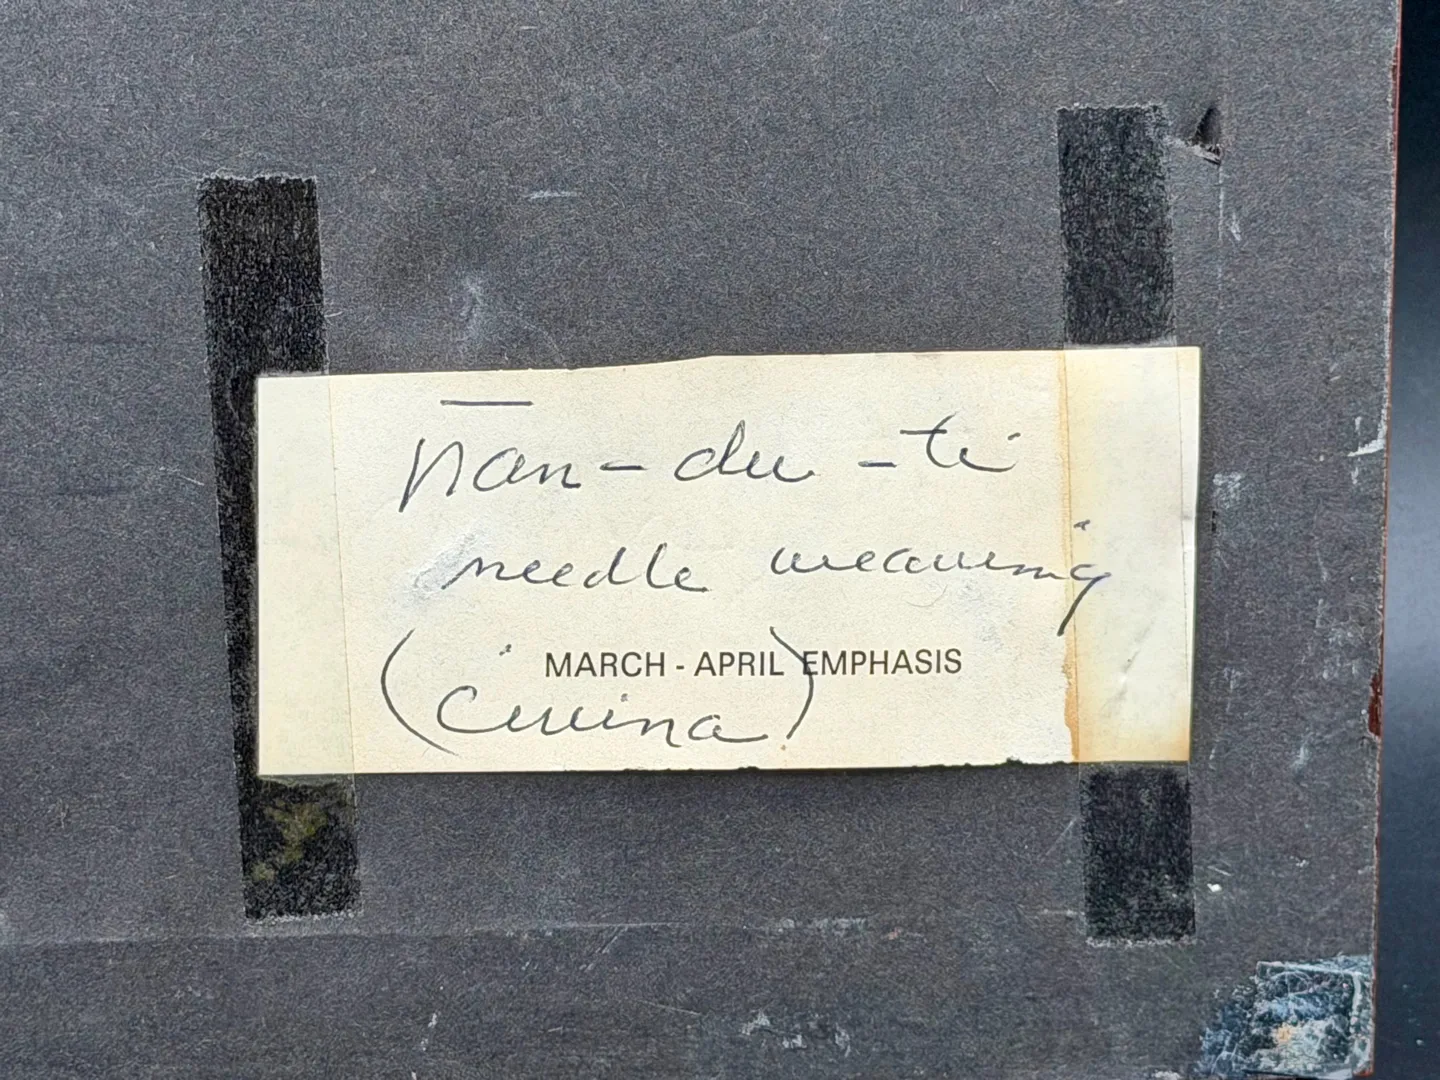 n̄an-du-ti
needle weaving
MARCH - APRIL EMPHASIS